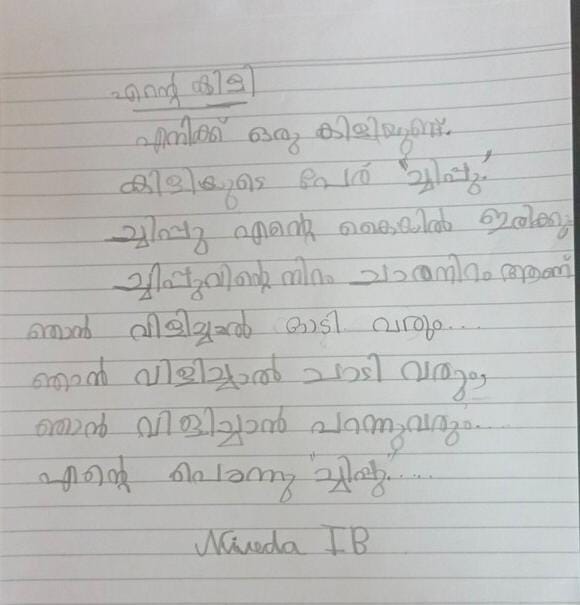 എന്റെ കിളി
എനിക്ക് ഒരു കിളിയുണ്ട്.
കിളിയുടെ പേര് "ചിപ്പു"
ചിപ്പു എന്റെ കൈയിൽ ഇരിക്കും
ചിപ്പുവിന്റെ നിറം ചാരനിറം ആണ്
ഞാൻ വിളിച്ചാൽ ഓടി വരും....
ഞാൻ വിളിച്ചാൽ ചാടി വരും,
ഞാൻ വിളിച്ചാൽ പറന്നുവരും....
എന്റെ പൊന്നു "ചിപ്പു".....
Niveda I B